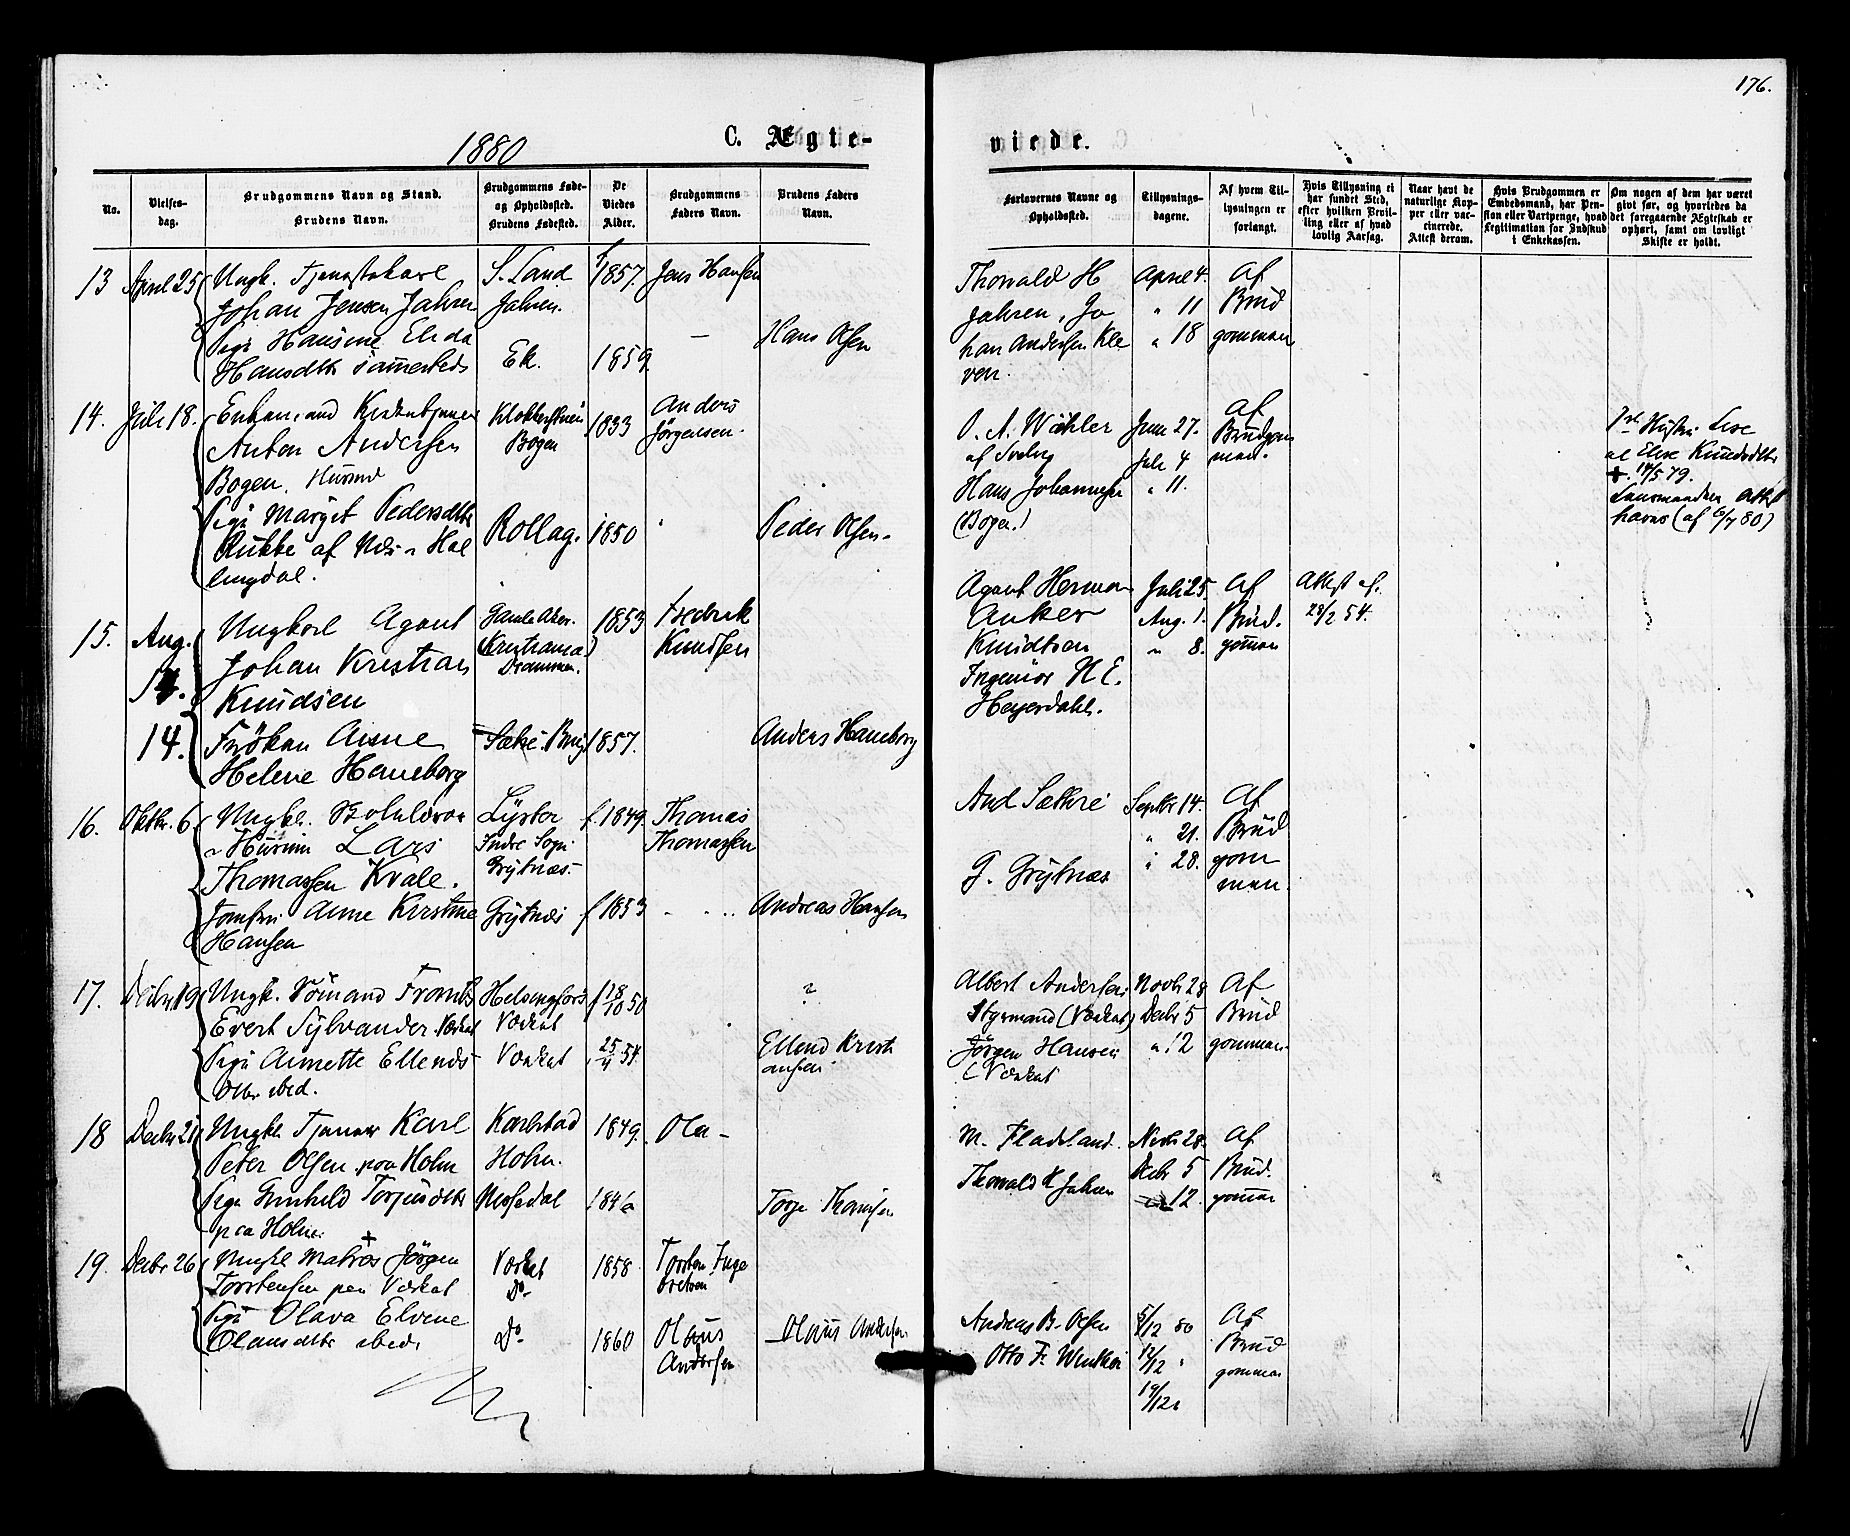 176.
1880
C. Ægte-
viede.
No.
Vielses-
dag.
Brudgommens Navn og Stand.
Brudens Navn.
Brudgommens Føde-
og Opholdssted.
Brudens Fødested.
De
Viedes
Alder.
Brudgommens
Faders Navn.
Brudens Faders
Navn.
Forlovernes Navne og
Opholdssted.
Tillysnings-
dagene.
Af hvem Til-
lysningen er
forlangt.
Hvis Tillysning ei
har fundet Sted,
efter hvilken Bevil-
ling eller af hvad
lovlig Aarsag.
Naar havt de
naturlige Kop-
per eller vac-
cinerede.
Attest derom.
Hvis Brudgommen er
Embedsmand, har Pen-
sion eller Vartpenge, hvad
Legitimation for Indskud
i Enkekassen.
Om nogen af dem har været
givt før, og hvorledes da
det foregaaende Ægteskab er
ophørt, samt om lovligt
Skifte er holdt.
13 April 25
Ungk. Tjenestekarl
Johan Jensen Jahren
Pige Hansine Elida
Hansdtr sammesteds
S. Sand
Jahren.
Ek.
1857.
1859.
Jens Hansen
—
Hans Olsen
Thorvald H
Jahren, Jo
han Andersen Kle
ven.
April 4.
" 11
" 18
Af
Brud
gommen
14. Juli 18.
Enkem. and Kirketjener
Anton Andersen
Bogen. Husmd
Pige Margit Pedersdtr
Rukke af Næs i Hal
lingdal.
Bogen
Rollag.
1833
1850
Anders
Jörgensen.
Peder Olsen.
O. A. Wøhler
af Svelvig
Hans Johannesen
(Bogen.)
Juni 27.
Juli 4
" 11.
Af
Brudgom
men.
1ste Hustru Lise
el Else Knudsdtr
+ 14/5 79.
Lensmandens Attest
haves (af 6/7 80)
15. Aug.
14.
Ungkarl Agent
Johan Kristian
Knudsen
Frøken Anne
Helene Haneborg
Gamle Aker.
(Kristiania)
Drammen.
1853
1857.
Fredrik
Knudsen
Anders Haneborg
Agent Herman
Anker
Knudtsen
Ingeniør H E.
Heyerdahl.
Juli 25.
Aug. 1.
" 8.
Af
Brud.
gommen
Attest af.
23/2 54.
16. Oktbr. 6
Ungk. Skolelærer
Lars
Thomassen Kvale.
Jomfru Anne Kirstine
Hansen
Lyster
Indre Sogn
Grytnæs.
Grytnæs
f. 1849.
f 1853
Thomas
Thomassen
Andreas Hansen
And Sætre
G. Grytnæs
Septbr 14.
" 21.
" 28.
Af
Brud
gom
men.
17. Decbr. 19
Ungk. Sömand Frants
Evert Sylvander. Værket
Pige Annette Ellends
dtr ibid.
Helsingfors
Værket
Værket
f 18/10 50
25/11 54.
?
Ellend Kristi
ansen
Albert Andersen
Styrmand (Værket)
Jørgen Hansen
(Værket
Novbr 28
Decbr 5
" 12
Af
Brud
gommen.
18 Decbr 21
Ungk. Tjener Karl
Peter Olsen paa Holm
Pige Gunhild Torjusdtr
paa Holm.
Karlstad
Holm.
Nissedal
1849.
1846
Ola —
M. Fladeland.
Thorvald H Jahren
Novbr 28.
Decbr 5
12.
Af
Brud.
gommen
19. Decbr 26
Ungk Matros Jörgen
Torstensen paa Værket
Pige Olava Elvine
Olausdtr ibid.
Værket
Do.
Do.
1858
1860
Torsten Inge
bretsen
Olaus
Andersen
Olaus Andersen
Andreas B. Olsen
5/12 80
12/12 "
19/12
Af
Brud
gommen